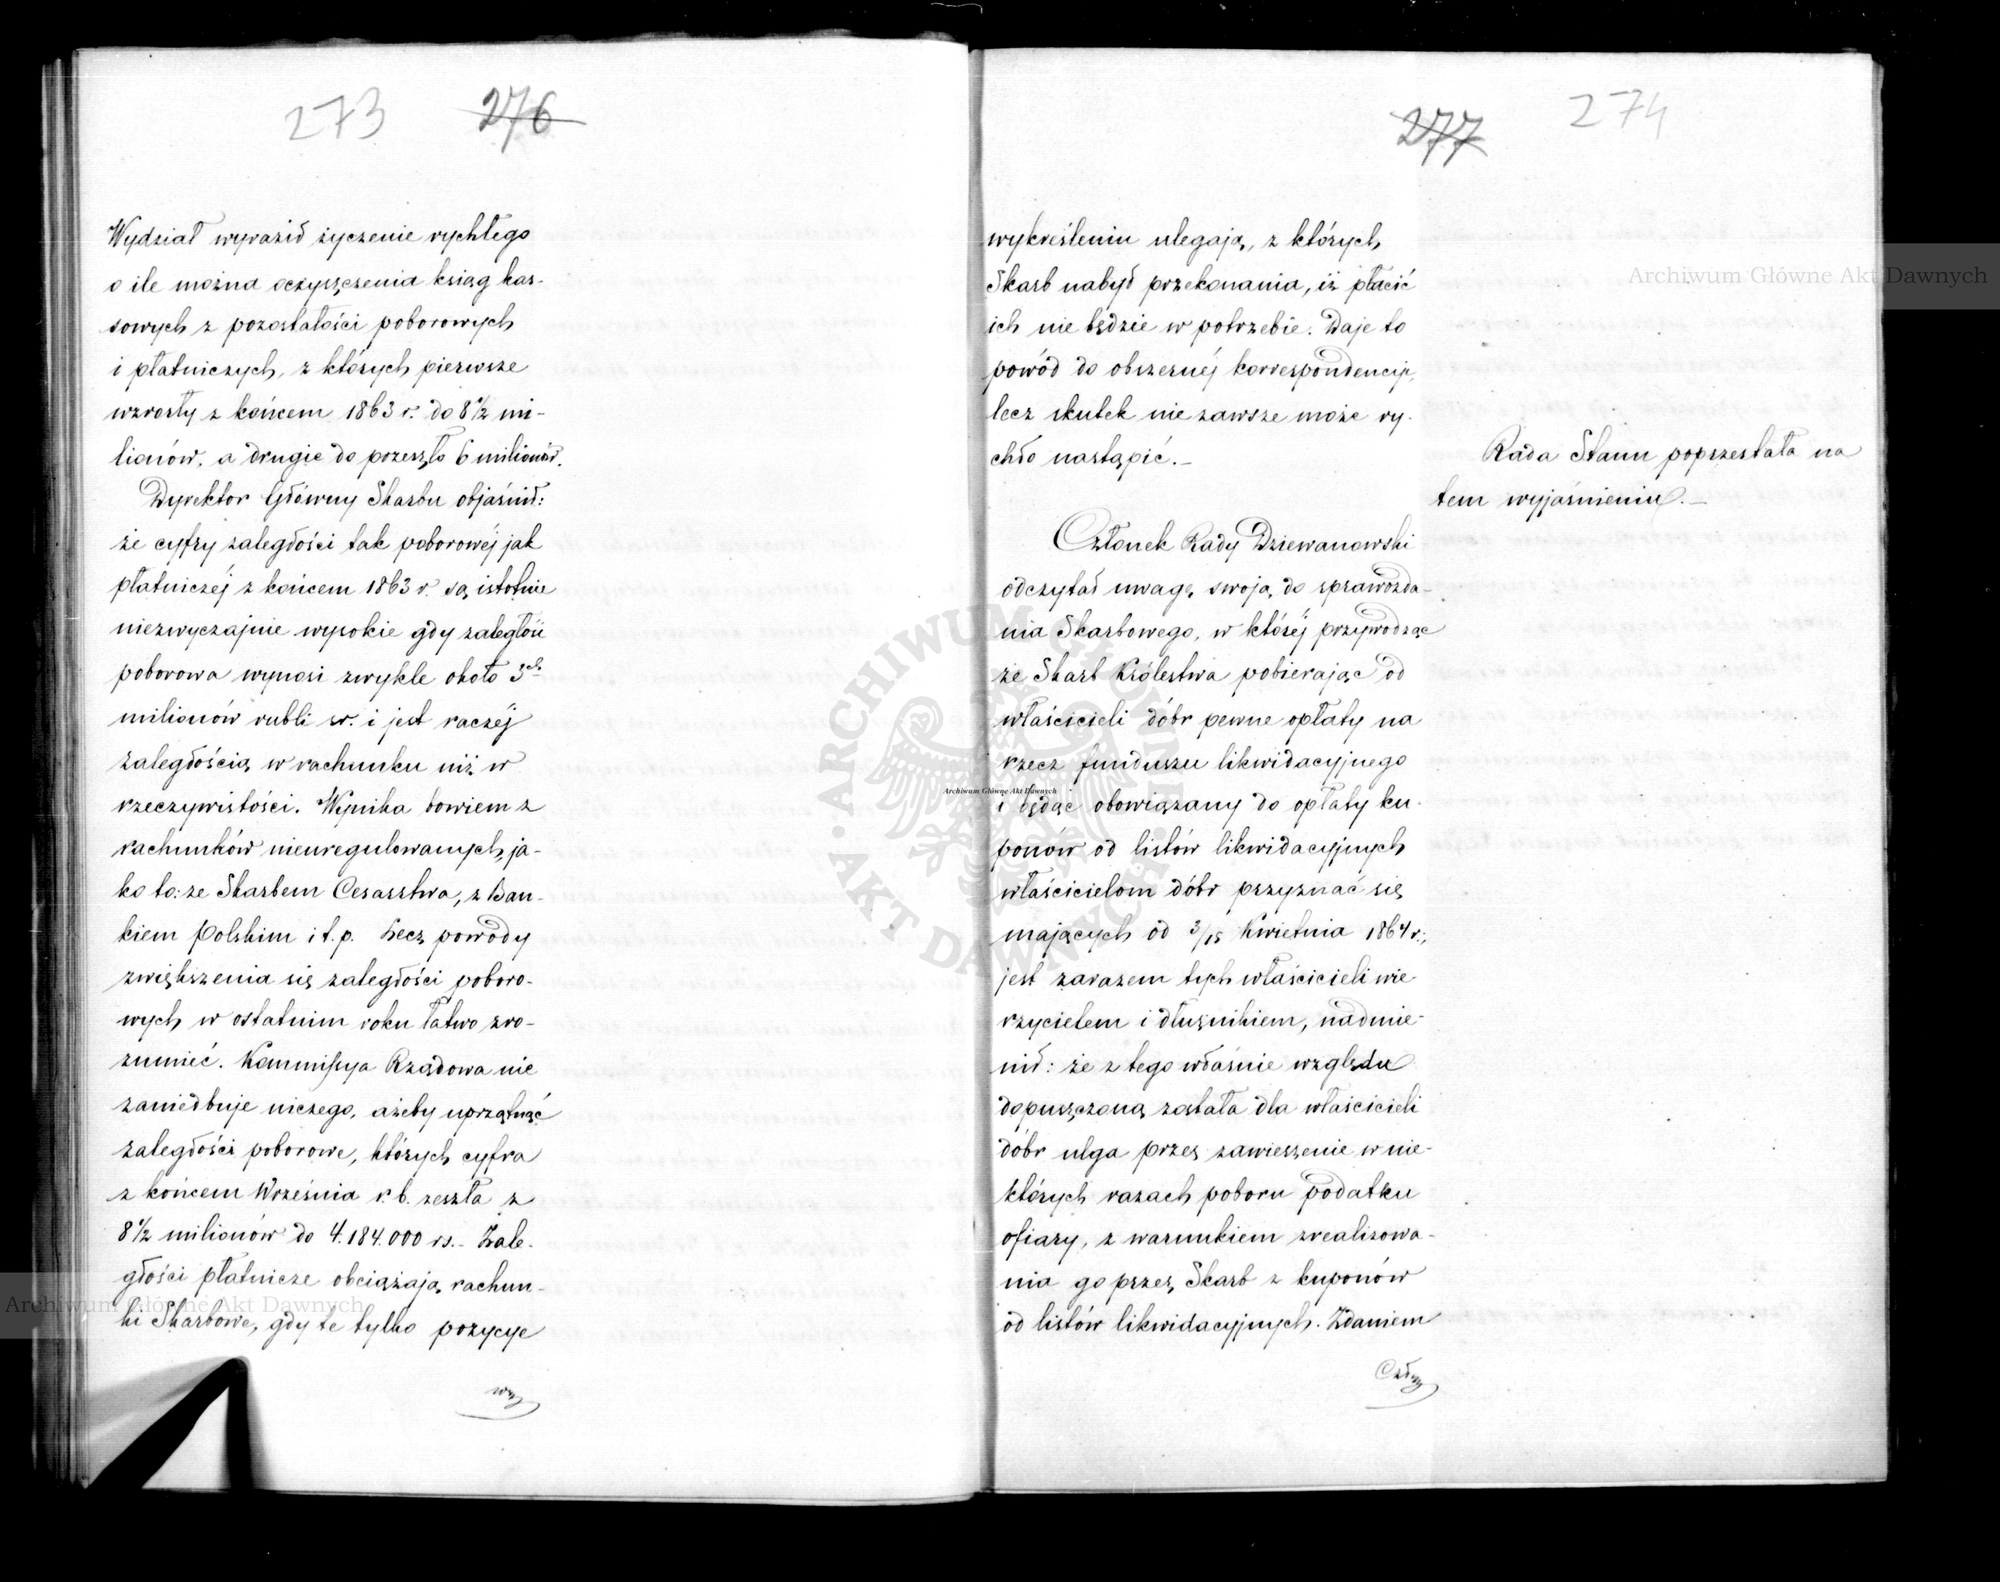 273 276
Wydział wyraził życzenie rychłego
o ile można oczyszczenia ksiąg kas-
sowych z pozostałości poborowych
i płatniczych, z których pierwsze
wzrosły z końcem 1863 r. do 8 1/2 mi-
lionów, a drugie do przeszło 6 milionów.
Dyrektor Główny Skarbu objaśnił:
że cyfry zaległości tak poborowéj jak
płatniczéj z końcem 1863 r. są istotnie
niezwyczajnie wysokie gdy zaległość
poborowa wynosi zwykle około 3ch
milionów rubli sr. i jest raczéj
zaległością w rachunku niż w
rzeczywistości. Wynika bowiem z
rachunków nieuregulowanych, ja-
ko to: ze Skarbem Cesarstwa, z Ban-
kiem Polskim i t. p. Lecz powody
zwiększenia się zaległości poboro-
wych w ostatnim roku łatwo zro-
zumieć. Kommissya Rządowa nie
zaniedbuje niczego, ażeby uprzątnąć
zaległości poborowe, których cyfra
z końcem Września r. b. zeszła z
8 1/2 milionów do 4.184.000 rs. Zale-
głości płatnicze obciążają rachun-
ki Skarbowe, gdy te tylko pozycye
wy
277 274
wykreśleniu ulegają, z których
Skarb nabył przekonania, iż płacić
ich nie będzie w potrzebie. Daje to
powód do obszernéj korrespondencyi,
lecz skutek nie zawsze może ry-
chło nastąpić.
Rada Stanu poprzestała na
tem wyjaśnieniu.
Członek Rady Dziewanowski
odczytał uwagę swoją do sprawozda-
nia Skarbowego, w któréj przywodząc
że Skarb Królestwa pobierając od
właścicieli dóbr pewne opłaty na
rzecz funduszu likwidacyjnego
i będąc obowiązany do opłaty ku-
ponów od listów likwidacyjnych
właścicielom dóbr przyznać się
mających od 3/15 Kwietnia 1864 r.,
jest zarazem tych właścicieli wie-
rzycielem i dłużnikiem, nadmie-
nił: że z tego właśnie względu
dopuszczoną została dla właścicieli
dóbr ulga przez zawieszenie w nie-
których razach poboru podatku
ofiary, z warunkiem zrealizowa-
nia go przez Skarb z kuponów
od listów likwidacyjnych. Zdaniem
Człon
Archiwum Główne Akt Dawnych
Archiwum Główne Akt Dawnych
Archiwum Główne Akt Dawnych
ARCHIWUM GŁÓWNE AKT DAWNYCH